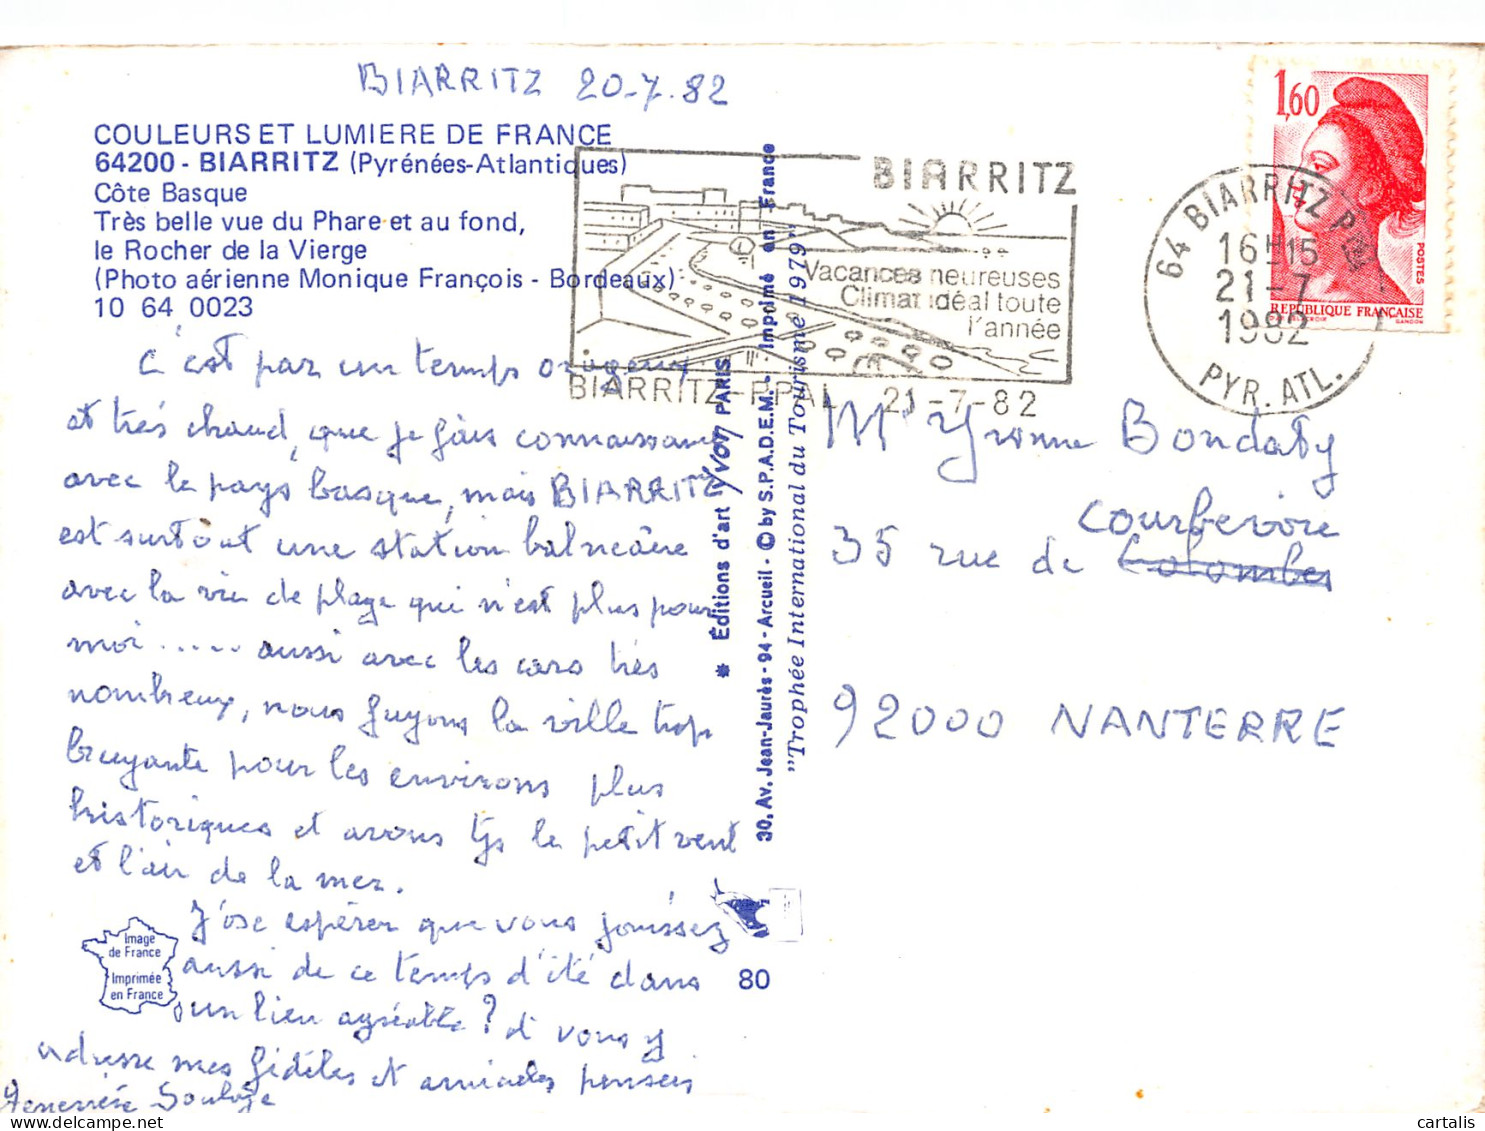 BIARRITZ 20-7.82
COULEURS ET LUMIERE DE FRANCE
64200 - BIARRITZ (Pyrénées-Atlantiques)
Côte Basque
Très belle vue du Phare et au fond,
le Rocher de la Vierge
(Photo aérienne Monique François - Bordeaux)
10 64 0023
C'est par un temps orageux
et très chaud, que je fais connaissance
avec le pays basque, mais BIARRITZ
est surtout une station balnéaire
avec la vie de plage qui n'est plus pour
moi ..... aussi avec les cars très
nombreux, nous fuyons la ville trop
bruyante pour les environs plus
historiques et avons tjs le petit vent
et l'air de la mer.
J'ose espérer que vous jouissez
aussi de ce temps d'été dans
un lieu agréable? et vous y
adresse mes fidèles et amicales pensées
Geneviève
Image
de France
Imprimée
en France
* Éditions d'art Yvon PARIS
30, Av. Jean-Jaurès - 94 - Arcueil - © by S.P.A.D.E.M. - Imprimé en France
"Trophée International du Tourisme 1979"
80
BIARRITZ
Vacances heureuses
Climat idéal toute
l'année
BIARRITZ-PPAL 21-7-82
64 BIARRITZ P.PAL
16H15
21-7
1982
PYR. ATL.
1,60
POSTES
REPUBLIQUE FRANÇAISE
GANDON
Yvonne Bondaty
Courbevoie
35 rue de Colombes
92000 NANTERRE
cartalis